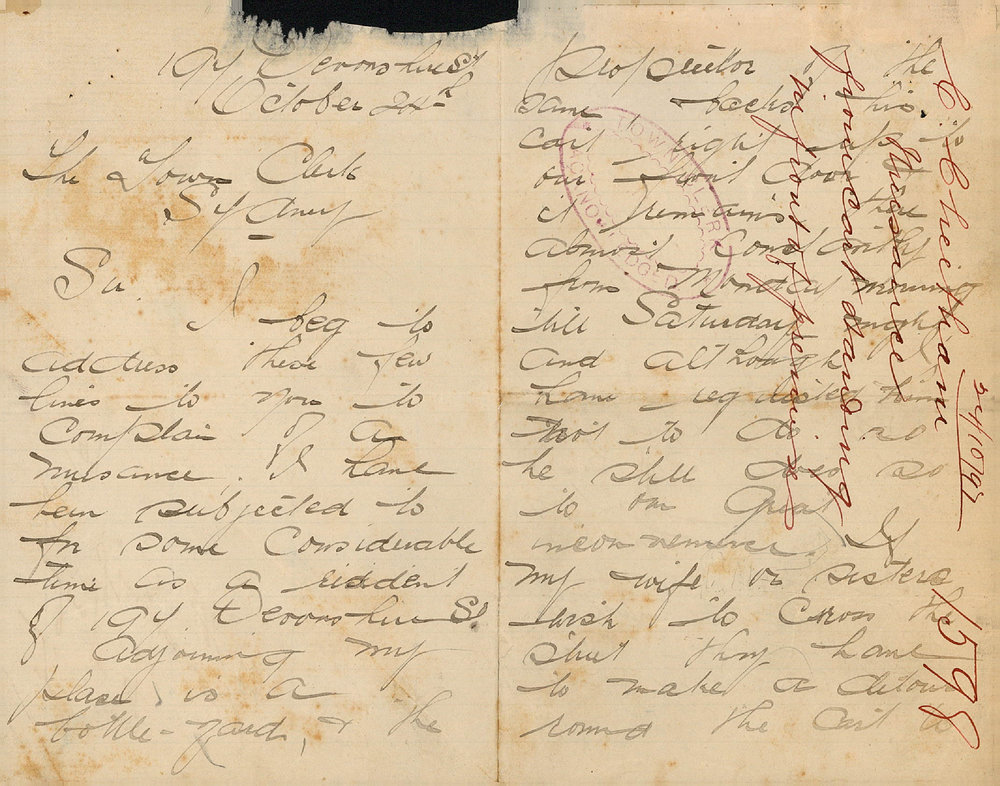 197 Devonshire St
October 24th
The Town Clerk
Sydney
Sir
I beg to
address these few
lines to you to
complain of a
nuisance, I have
been subjected to
for some considerable
time as a resident
of 197 Devonshire St
Adjoining my
place is a
bottle-yard, & the
proprietor of the
same backs his
cart right up to
our front door &
it remains there
almost constantly
from Monday morning
till Saturday night
and although I
have requested him
not to do so
he still does so
to our great
inconvenience. If
my wife or sisters
wish to cross the
street they have
to make a detour
round the cart to
C Cheetham
nuisance
from cart standing
in front of premises
24/10/92
1598
TOWN CLERK